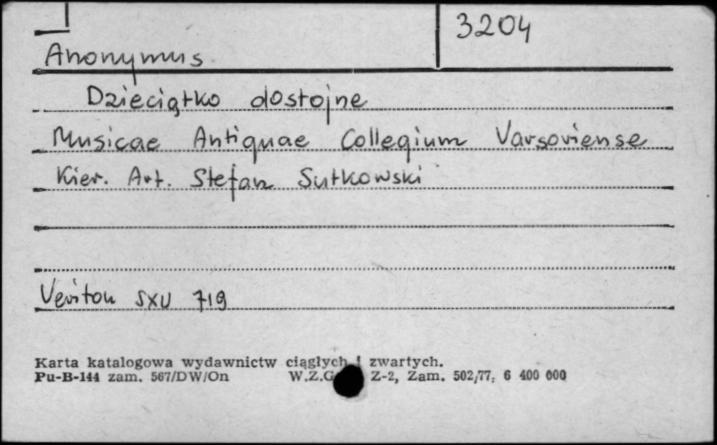 3204
Anonymus
Dzieciątko dostojne
Musicae Antiquae Collegium Varsoviense
Kier. Art. Stefan Sutkowski
Veriton SXV 719
Karta katalogowa wydawnictw ciągłych i zwartych.
Pu-B-144 zam. 567/DW/On W.Z.G Z-2, Zam. 502/77, 6 400 000